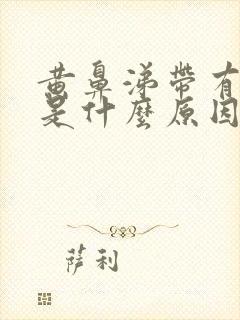 黄鼻涕帶有
是什麼原因
萨利